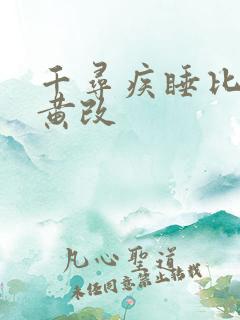 千尋疾睡比
黄改
凡心聖道
未经同意禁止转载